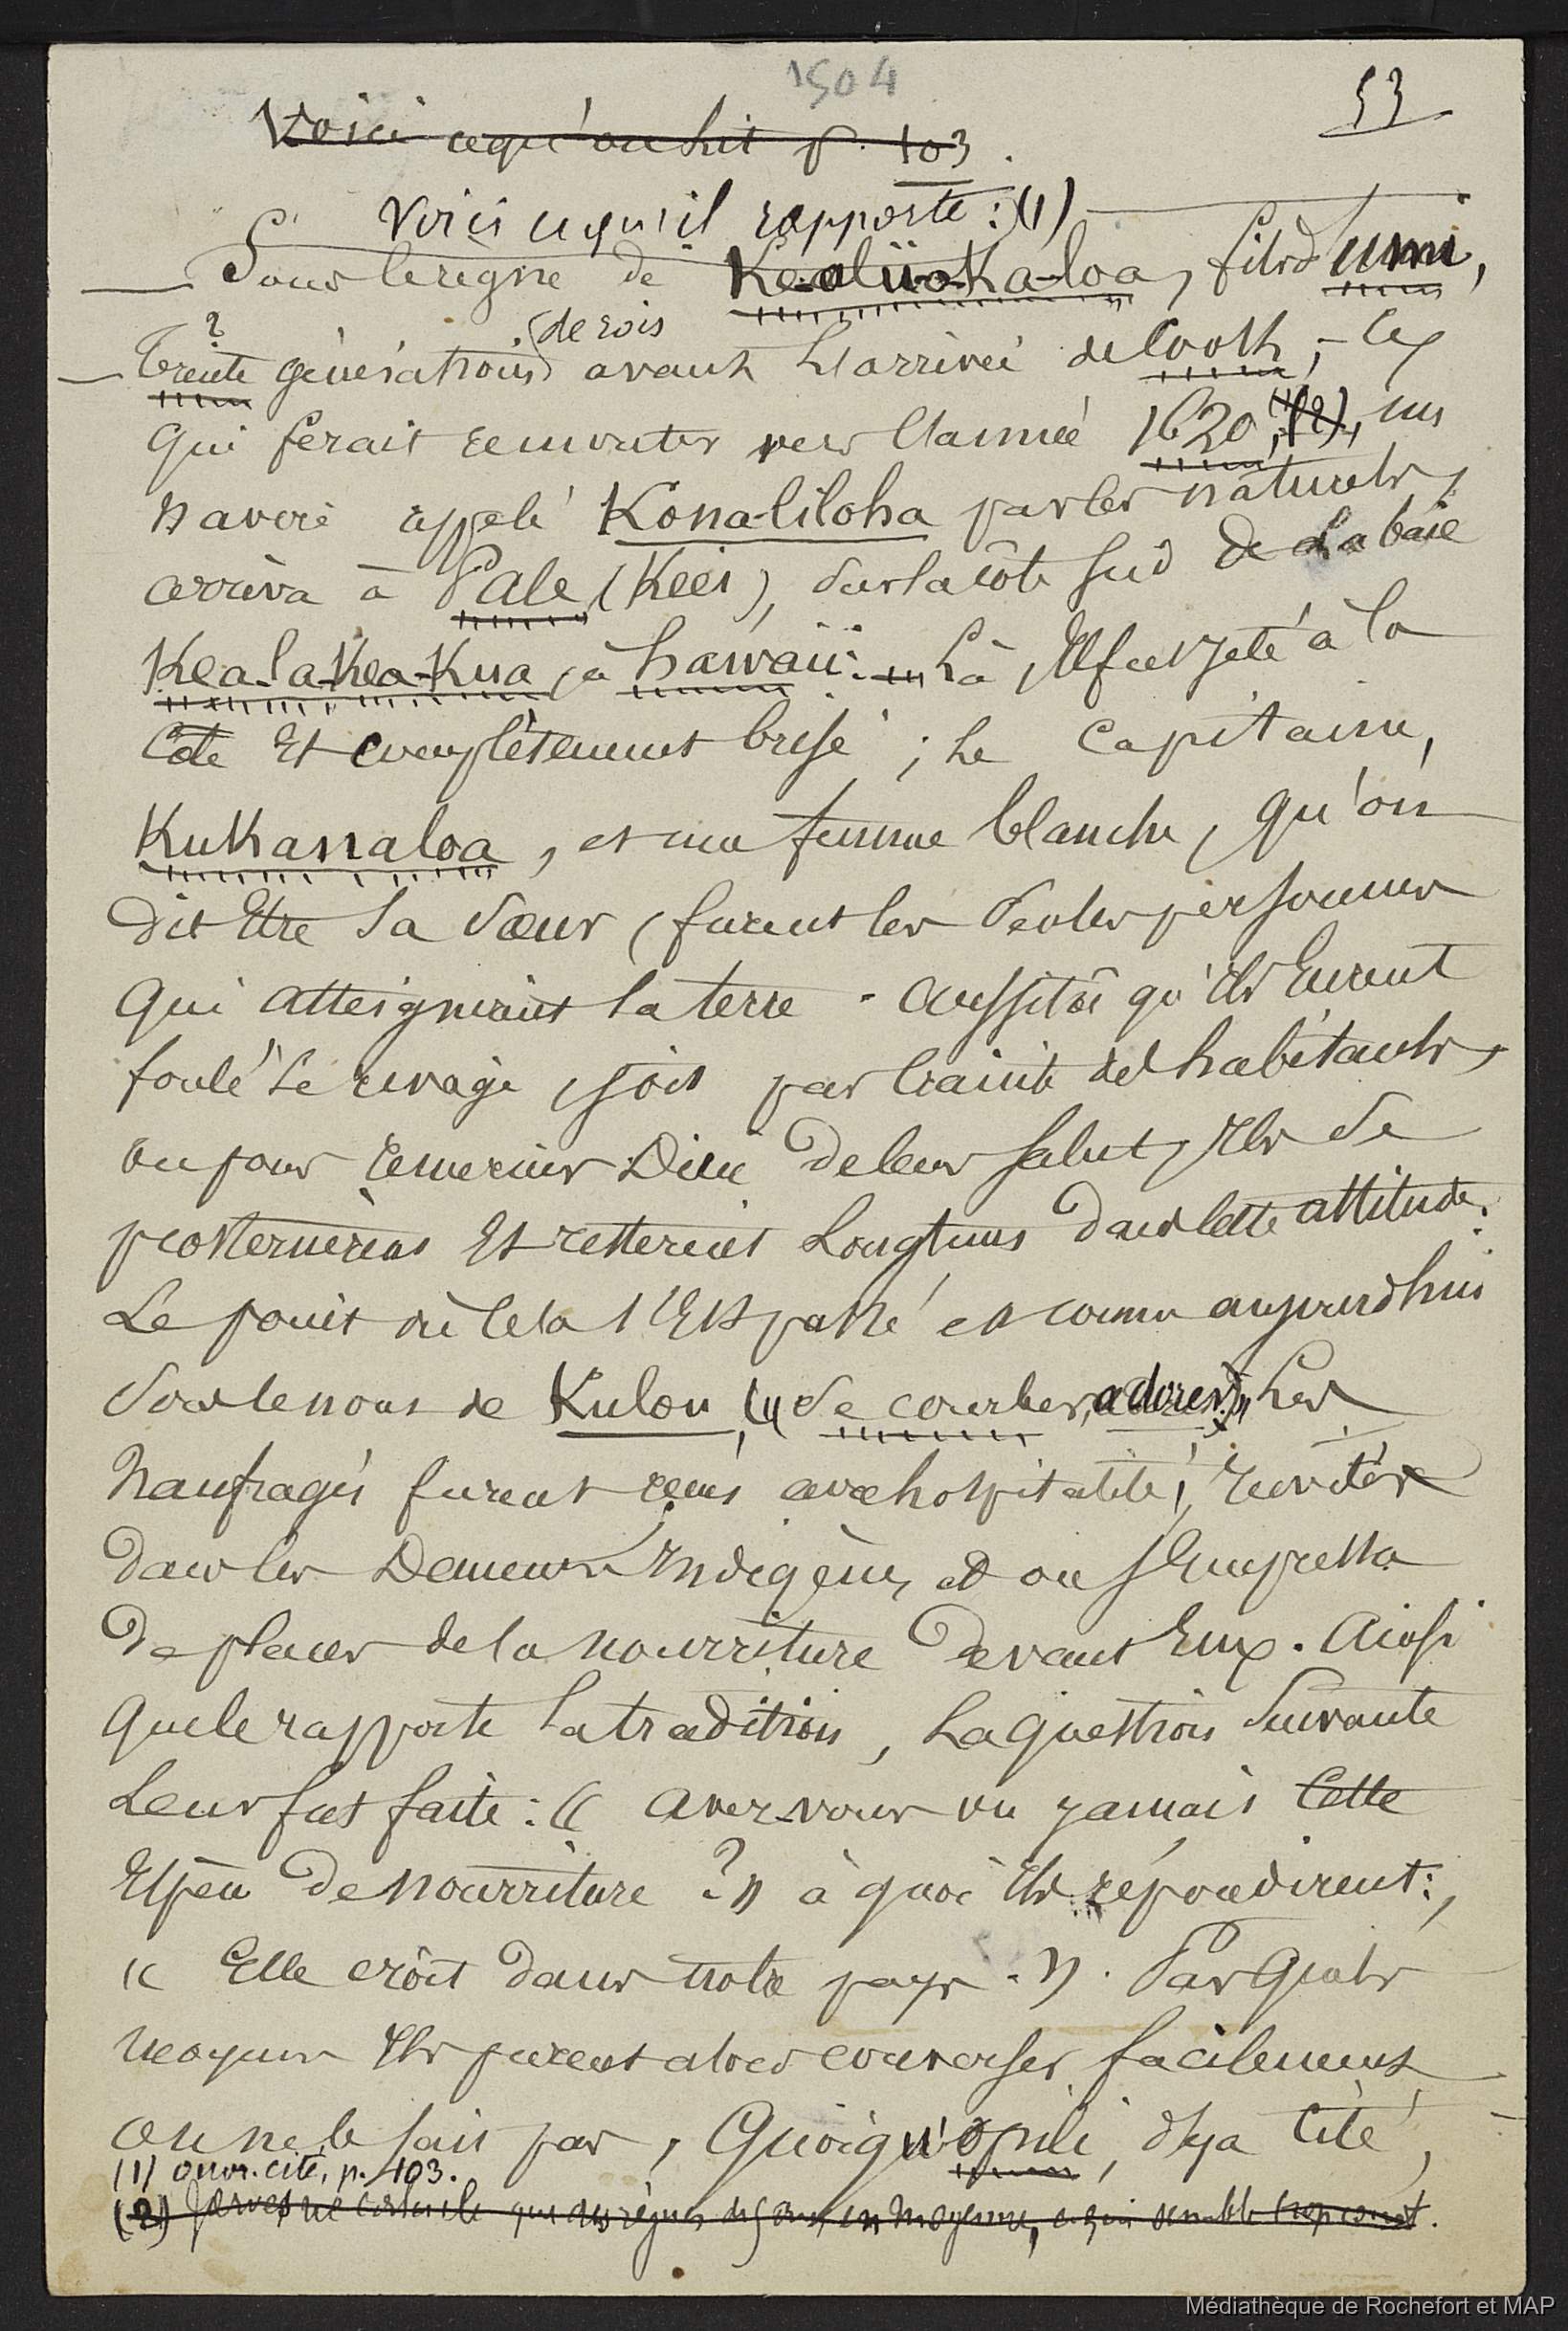 1504
53
Voici ce qu'on lit p. 103.
Voici ce qu'il rapporte : (1)
— Sous le règne de Kealiio-Ka-loa, fils d'Umi,
?
(de rois)
— trente générations avant l'arrivée de Cook, - ce
qui ferait remonter vers l'année 1620, (2), un
navire appelé Kona-liloha par les naturels,
arriva à Pale (Keei), sur la côte sud de la baie
Kea-la-Kea-Kua, à hawaii. — Là, il fut jeté à la
côte et complètement brisé ; le capitaine,
Kukanaloa, et une femme blanche, qu'on
dit être sa sœur, furent les seules personnes
qui atteignirent la terre. Aussitôt qu'ils eurent
foulé le rivage, soit par crainte des habitants,
ou pour remercier Dieu de leur salut, ils se
prosternèrent et restèrent longtems dans cette attitude.
Le point où cela s'est passé est connu aujourd'hui
sous le nom de Kulou, (« se courber, adorer) » Les
naufragés furent reçus avec hospitalité, invités
dans les demeures indigènes, et on s'empressa
de placer de la nourriture devant eux. Ainsi
que le rapporte la tradition, la question suivante
leur fut faite : « avez-vous vu jamais cette
espèce de nourriture ? » à quoi ils répondirent :,
« Elle croît dans notre pays. ». Par quels
moyens ils purent alors converser facilement
on ne le sait pas, quoiqu'opili, déja cité,
(1) ouvr. cité, p. 103.
(2) Jarves ne calcule que des règnes de ans en moyenne, ce qui semble trop court.
Médiathèque de Rochefort et MAP